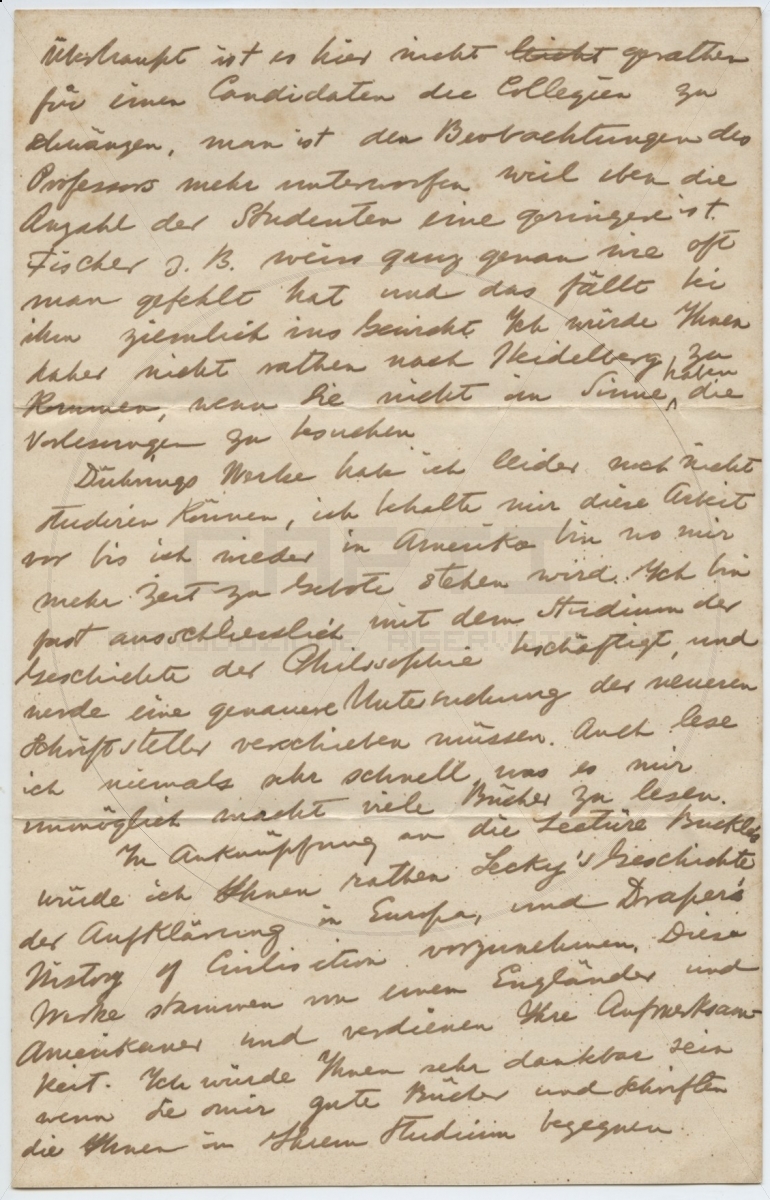 Überhaupt ist es hier nicht leicht gerathen
für einen Candidaten die Collegien zu
schwänzen, man ist den Beobachtungen des
Professors mehr unterworfen weil eben die
Anzahl der Studenten eine geringere ist.
Fischer z. B. weiss ganz genau wie oft
man gefehlt hat und das fällt bei
ihm ziemlich ins Gewicht. Ich würde Ihnen
daher nicht rathen nach Heidelberg zu
kommen, wenn Sie nicht im Sinne haben die
Vorlesungen zu besuchen
Dührings Werke hab ich leider noch nicht
studiren können, ich behalte mir diese Arbeit
vor bis ich wieder in Amerika bin wo mir
mehr Zeit zu Gebote stehen wird. Ich bin
fast ausschliesslich mit dem Studium der
Geschichte der Philosophie beschäftigt, und
werde eine genauere Untersuchung der neueren
Schriftsteller verschieben müssen. Auch lese
ich niemals sehr schnell, was es mir
unmöglich macht viele Bücher zu lesen.
In Anknüpfung an die Lectüre Buckles
würde ich Ihnen rathen Lecky's Geschichte
der Aufklärung in Europa, und Draper's
History of Civilisation vorzunehmen. Diese
Werke stammen von einem Engländer und
Amerikaner und verdienen Ihre Aufmerksam-
keit. Ich würde Ihnen sehr dankbar sein
wenn Sie mir gute Bücher und Schriften
die Ihnen in Ihrem Studium begegnen